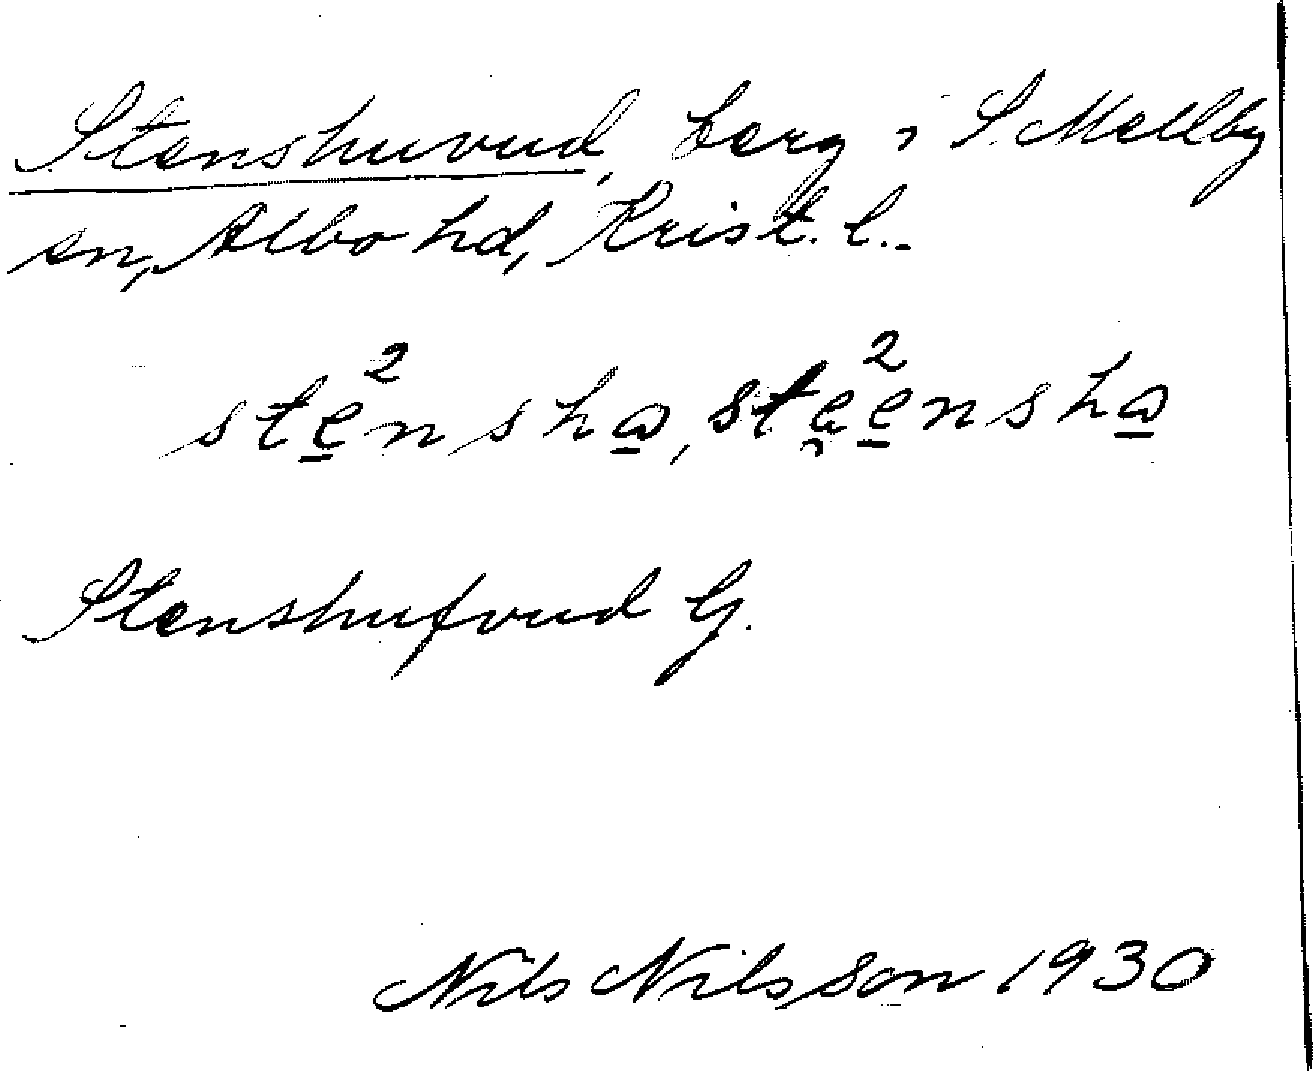 Stenshuvud, berg i S. Mellby
sn, Albo hd, Krist. l.
ste̲²nsha̲, stee̲²nsha̲
Stenshufvud G.
Nils Nilsson 1930